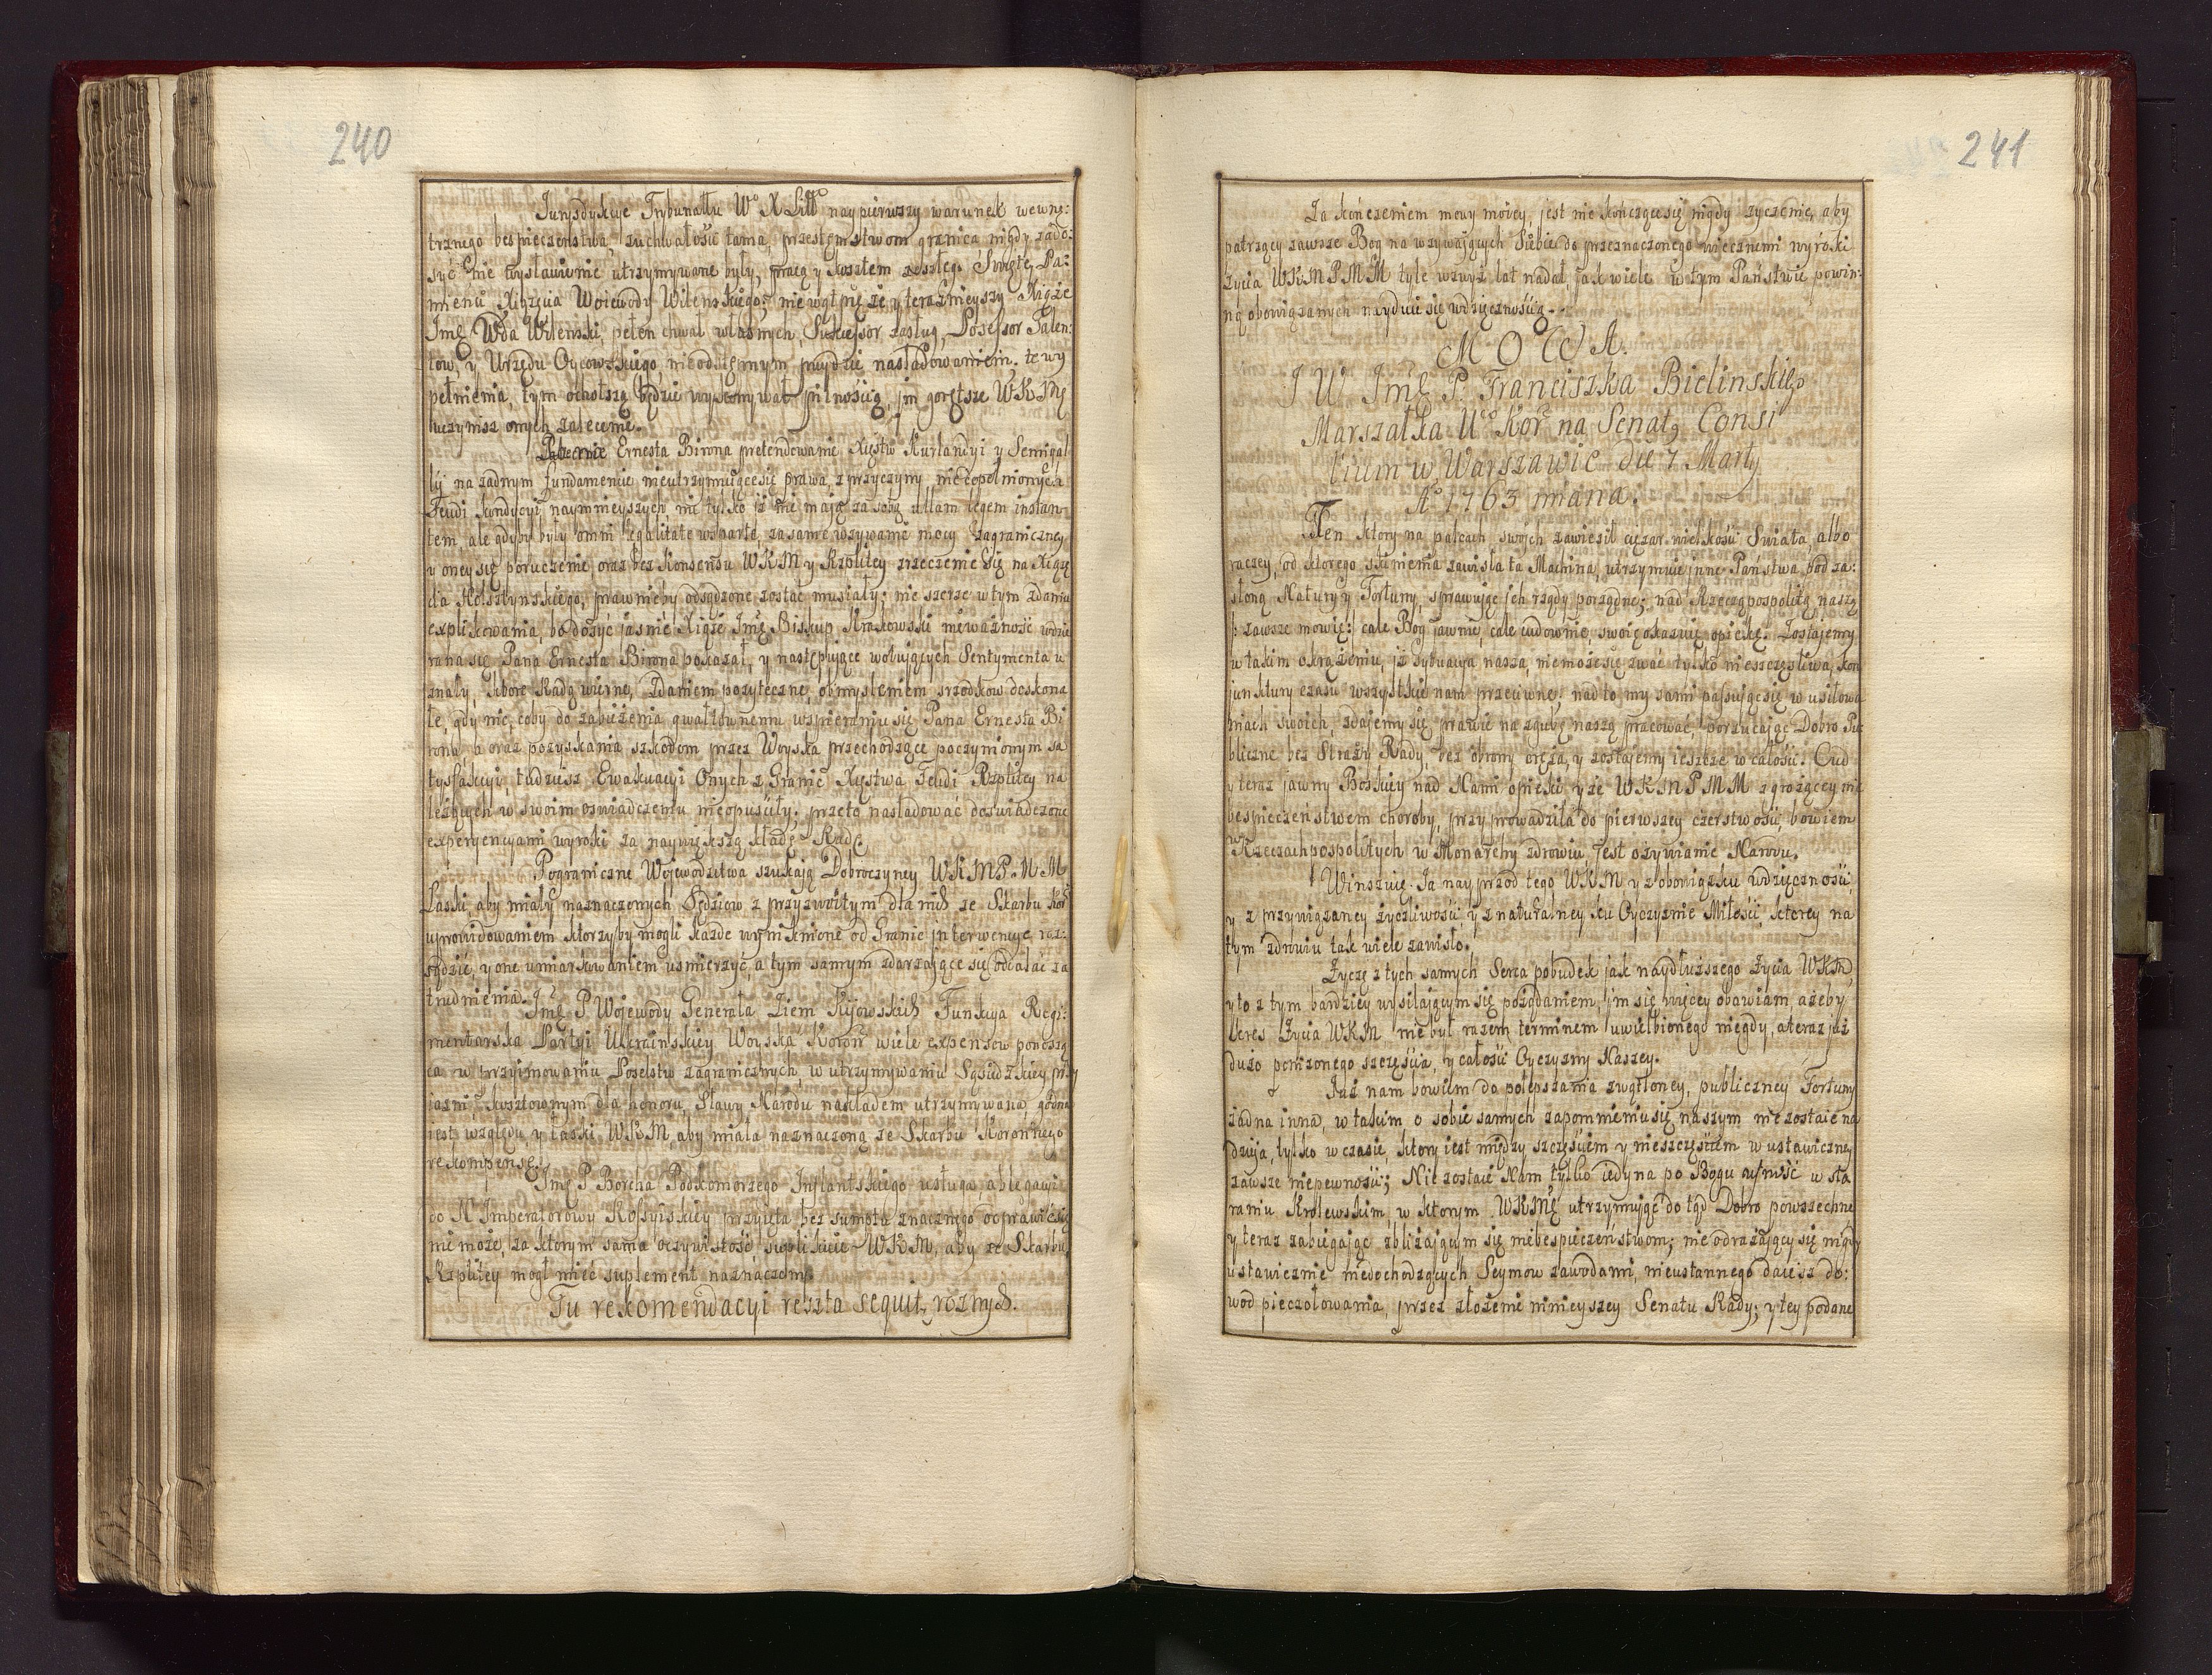 240
Jurysdykcye Trybunałłu Wo X Litto naypierwszy warunek wewnę:
trznego bespieczenstwa, zuchwałości tama, przestęmstwom granica nigdy zado:
syć nie wysławienie utrzymywane były, pracą y kosztem zeszłego Swiętey Pa:
mieńci Xiążęcia Woiewody Wilenskiego, niewątpię że y teraznieyszy Xiąże
Jmę Wda Wilenski, pełen chwał własnych, Sukcessor zasług, Possessor Talen:
tow, y Urzędu Oycowskiego, nieodstęmnym poydzie nasladowaniem, te wy
pełnienia, tym ochotszą będzie wykonywał pilnością, im gorętsze WKMę
uczynisz onych zalecenie.
Ernesta Birona pretendowanie Xięstw Kurlandyi y Semigal
lij na żadnym fundamencie nieutrzymuiącesię prawa, z przyczyny niedopełnionych
Feudi kondycyi naymnieyszych nie tylko iż nie maią za sobą ullam legem instan
tem, ale gdyby były omni legalitate wsparte, za same wzywanie mocy zagraniczney
y oney się poruczenie, oraz bez Konsensu WKM y Rzpltey zrzeczenie się na Xiążę
cia Holsztynskiego, prawnieby odsądzone zostać musiały; nie szerzę w tym zdaniu
explikowania, bo dosyć iasnie Xiąże Jmę Biskup Krakowski nieważność wdzie
rania się Pana Ernesta Birona pokazał, y następuiące wotuiących Sentymenta u
znały, ktore Radą wierne, Zdaniem pożyteczne, obmysleniem srzodkow doskona
łe, gdy nic, coby do zabieżenia gwałtownemu wspieraniu się Pana Ernesta Bi
rona, a oraz pozyskania szkodom przez Woyska przechodzące poczynionym sa
tysfakcyi, tudziesz Ewakuacyi Onych z Granic Xięstwa Feudi Rzpltey na
leżących w swoim oswiadczeniu nieopuściły; przeto nasladować doswiadczone
experyencyami wyroki za naywiększą kładę Radę.
Pograniczne Wojewodztwa szukaią Dobroczynney WKMP.M.M
Łaski, aby miały naznaczonych Sędziow z przyzwoitym dla nich ze Skarbu Kor
uprowidowaniem, ktorzyby mogli każde wyniknione od Granic interwencye roz:
sądzić, y one umiarkowaniem usmierzyć, a tym samym zdarzaiące się oddalać za
trudnienia. Jmę P. Wojewody Generała Ziem Kijowskich Funkcya Regi:
mentarska Partyi Ukrainskiey Woyska Koron wiele expensow ponoszą
ca w przyimowaniu Poselstw zagranicznych, w utrzymywaniu Sąsiedzkiey przy
jazni, kosztownym dla honoru, Sławy Narodu nakładem utrzymywana, godna
jest względu y łaski WKM, aby miała naznaczoną ze Skarbu Koronnego
rekompensę.
Jmę P Borcha Podkomorzego Inflantskiego usługa, ablegacyi
do N Imperatorowy Rossyiskiey przyięta bez sumptu znacznego odprawićsię
nie może, za ktorym sama oczywistość suplikuie WKM, aby ze Skarbu
Rzpltey mogł mieć suplement naznaczony.
Tu rekomendacyi reszta sequit, roznych.
241
Za kończeniem mowy moiey, jest nie kończącesię nigdy życzenie, aby
patrzący zawsze Bog na wzywaiących Siebie do przeznaczonego wiecznemi wyroki
życia WKMPMM tyle wzwyż lat nadał, jak wiele w tym Państwie powin:
ną obowiązanych nayduie się wdzięcznością.
MOWA.
J W Jmę P. Franciszka Bielinskiego
Marszałka Wo Kor na Senatg Consi
lium w Warszawie die 7 Martij
Ao 1763 miana.
Ten ktory na palcach swoich zawiesił ciężar wielkości Swiata, albo
raczey, od ktorego skinienia zawisła ta Machina, utrzymuie inne Państwa pod za:
słoną Natury y Fortuny, sprawuiąc ich rządy porządne; nad Rzecząpospolitą naszą
zawsze mowię: cale Bog jawnie, cale cudownie, swoię okazuię opiekę. Zostajemy
w takim okrążeniu, iż sytuacya nasza, niemożesię zwać tylko nieszczęsliwa, kon
junktury czasu wszystkie nam przeciwne; nad to my sami passuiącsię w usiłowa
niach swoich, zdajemy się prawie na zgubę naszą pracować, porzucaiąc Dobro Pu
bliczne bez Straży Rady, bez obrony oręża, y zostajemy ieszcze w całości. Cud
y teraz jawny Boskiey nad Nami opieki, y że WKMPMM z grożącey nie
bespieczeństwem choroby, przyprowadziła do pierwszey czerstwości, bowiem
w Rzeczachpospolitych w Monarchy zdrowiu, jest ożywianie Narodu.
Winszuię Ja nayprzod tego WKM y z obowiązku wdzięczności,
y z przywiązaney życzliwości, y z naturalney ku Oyczyznie Miłości, ktorey na
tym zdrowiu tak wiele zawisło.
Życzę z tych samych Serca pobudek jak naydłuższego Życia WKM,
y to z tym bardziey wysilaiącym się pożądaniem, im się więcey obawiam, ażeby
kres Życia WKM nie był razem terminem uwielbionego niegdy, a teraz już
dużo poniżonego szczęścia, y całości Oyczyzny Naszey.
Już nam bowiem do polepszania zwątloney, publiczney Fortuny
żadna inna, w takim o sobie samych zapomnieniusię naszym niezostaie na
dzieja, tylko w czasie, ktory iest między szczęściem y nieszczęściem w ustawiczney
zawsze niepewności; Nie zostaie Nam tylko iedyna po Bogu ufność w sta
raniu Krolewskim, w ktorym WKMę utrzymuiąc do tąd Dobro powszechne
y teraz zabiegaiąc zbliżaiącym się niebespieczeństwom; nie odrażaiący się nigdy
ustawicznie niedochodzących Seymow zawodami, nieustannego daiesz do:
wod pieczołowania, przez złożenie ninieyszey Senatu Rady; y tey podane